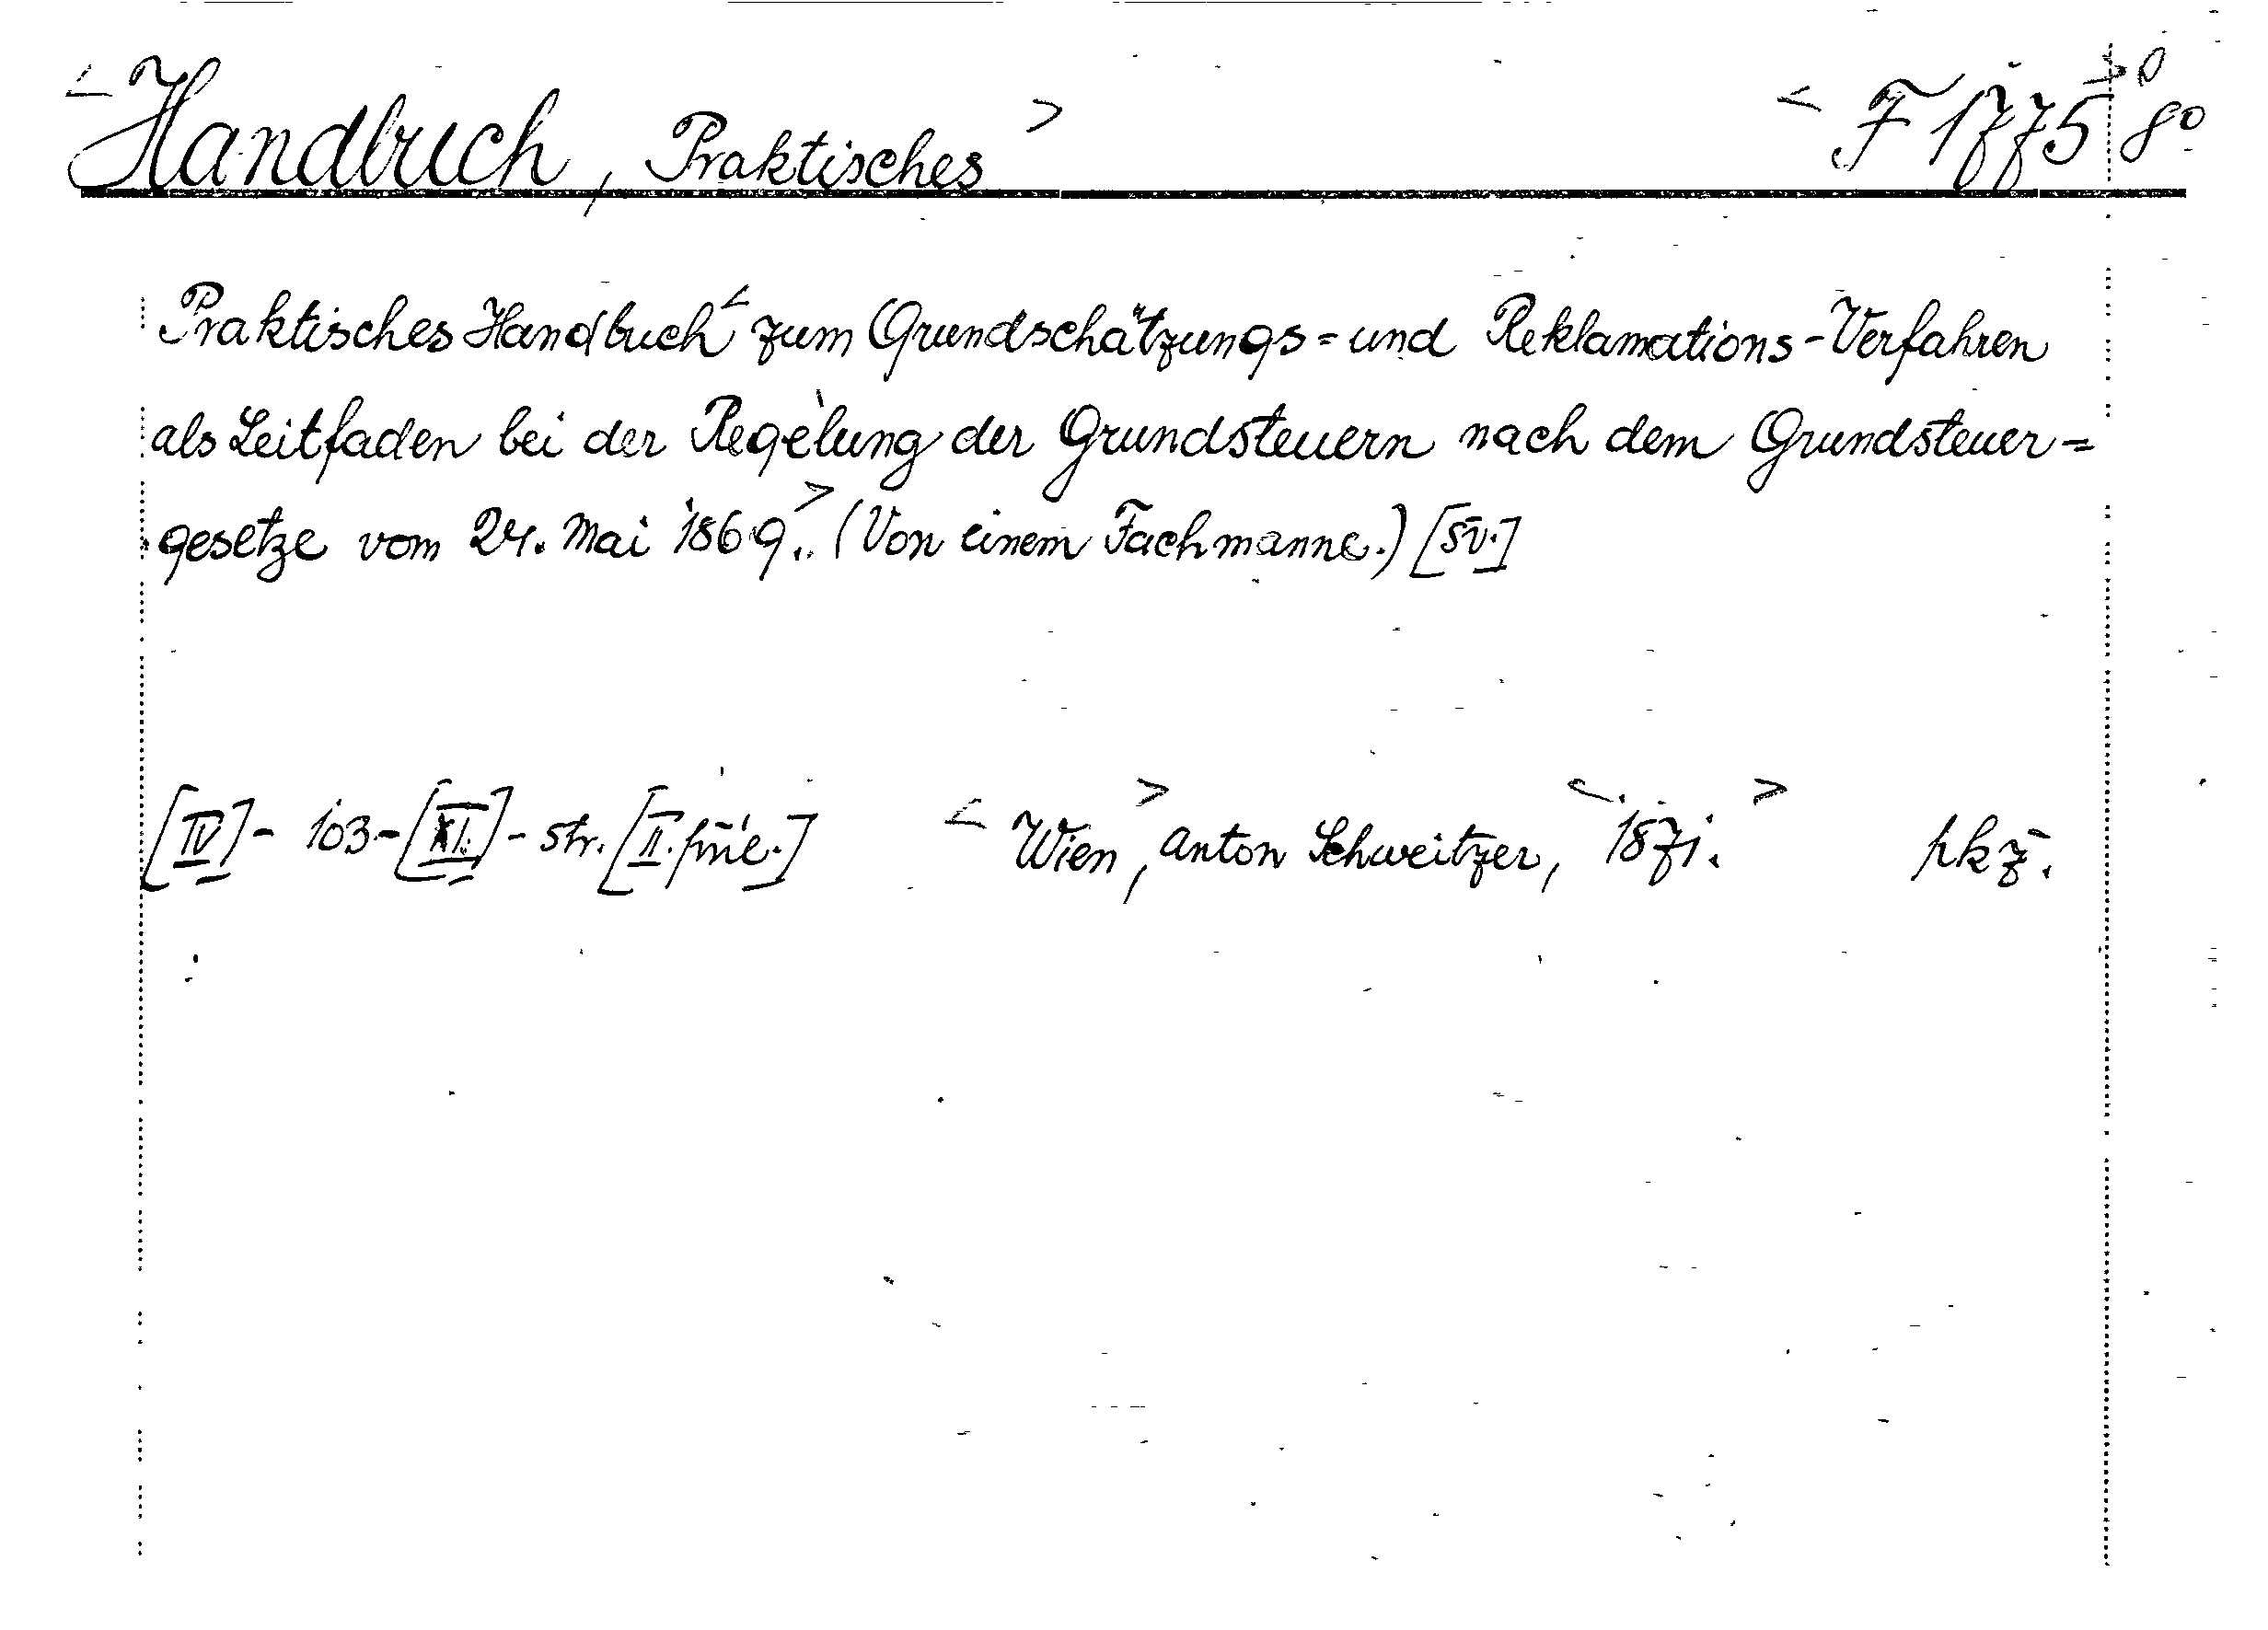 <Handbuch, Praktisches> <F 1775> 8°
Praktisches Handbuch< zum Grundschätzungs= und Reklamations-Verfahren
als Leitfaden bei der Regelung der Grundsteuern nach dem Grundsteuer=
gesetze vom 24. Mai 1869.> (Von einem Fachmanne.) [sv.]
[IV] - 103 - [XI.] - str. [II. ] <Wien>, Anton Schweitzer, <1871.>